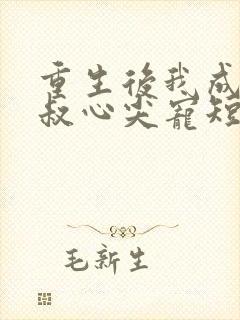 重生後我成
叔心尖寵短
毛新生